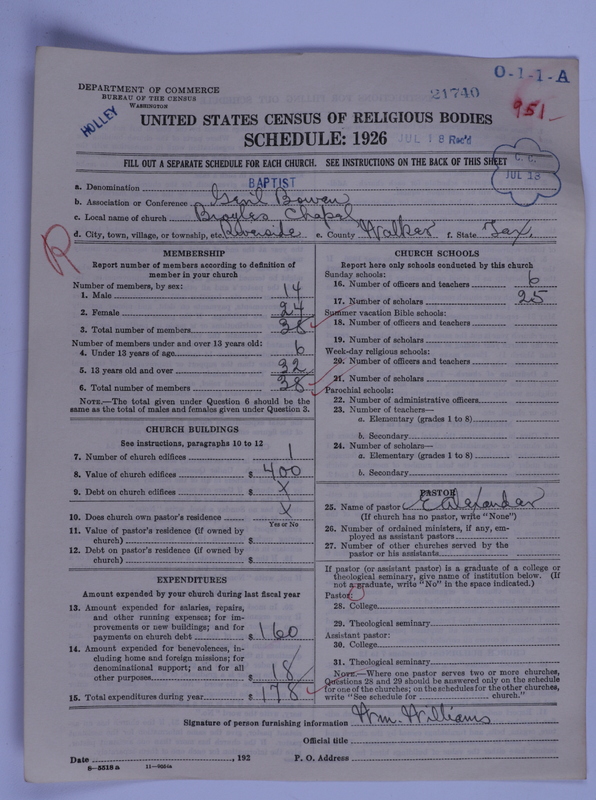 O-1-1-A
DEPARTMENT OF COMMERCE
BUREAU OF THE CENSUS
WASHINGTON
21740
951
HOLLEY
UNITED STATES CENSUS OF RELIGIOUS BODIES
SCHEDULE: 1926
JUL 18 Rec'd
FILL OUT A SEPARATE SCHEDULE FOR EACH CHURCH. SEE INSTRUCTIONS ON THE BACK OF THIS SHEET
C. C. JUL 18
a. Denomination BAPTIST
b. Association or Conference Bowen
c. Local name of church Broyles Chapel
d. City, town, village, or township, etc. Riverside e. County Walker f. State Tex.
R
MEMBERSHIP
Report number of members according to definition of
member in your church
Number of members, by sex:
1. Male 14
2. Female 24
3. Total number of members 38
Number of members under and over 13 years old:
4. Under 13 years of age 6
5. 13 years old and over 32
6. Total number of members 38
NOTE.—The total given under Question 6 should be the
same as the total of males and females given under Question 3.
CHURCH BUILDINGS
See instructions, paragraphs 10 to 12
7. Number of church edifices 1
8. Value of church edifices $ 400
9. Debt on church edifices $ X
10. Does church own pastor's residence X
Yes or No
11. Value of pastor's residence (if owned by
church) $
12. Debt on pastor's residence (if owned by
church) $
EXPENDITURES
Amount expended by your church during last fiscal year
13. Amount expended for salaries, repairs,
and other running expenses; for im-
provements or new buildings; and for
payments on church debt $ 160
14. Amount expended for benevolences, in-
cluding home and foreign missions; for
denominational support; and for all
other purposes $ 18
15. Total expenditures during year $ 178
CHURCH SCHOOLS
Report here only schools conducted by this church
Sunday schools:
16. Number of officers and teachers 6
17. Number of scholars 25
Summer vacation Bible schools:
18. Number of officers and teachers
19. Number of scholars
Week-day religious schools:
20. Number of officers and teachers
21. Number of scholars
Parochial schools:
22. Number of administrative officers
23. Number of teachers—
a. Elementary (grades 1 to 8)
b. Secondary
24. Number of scholars—
a. Elementary (grades 1 to 8)
b. Secondary
PASTOR
25. Name of pastor E Alexander
(If church has no pastor, write "None")
26. Number of ordained ministers, if any, em-
ployed as assistant pastors
27. Number of other churches served by the
pastor or his assistants
If pastor (or assistant pastor) is a graduate of a college or
theological seminary, give name of institution below. (If
not a graduate, write "No" in the space indicated.)
Pastor:
28. College
29. Theological seminary
Assistant pastor:
30. College
31. Theological seminary
NOTE.—Where one pastor serves two or more churches,
Questions 28 and 29 should be answered only on the schedule
for one of the churches; on the schedules for the other churches,
write "See schedule for church."
Signature of person furnishing information Wm. Williams
Official title
Date , 192 P. O. Address
8—5518 a 11—9354a